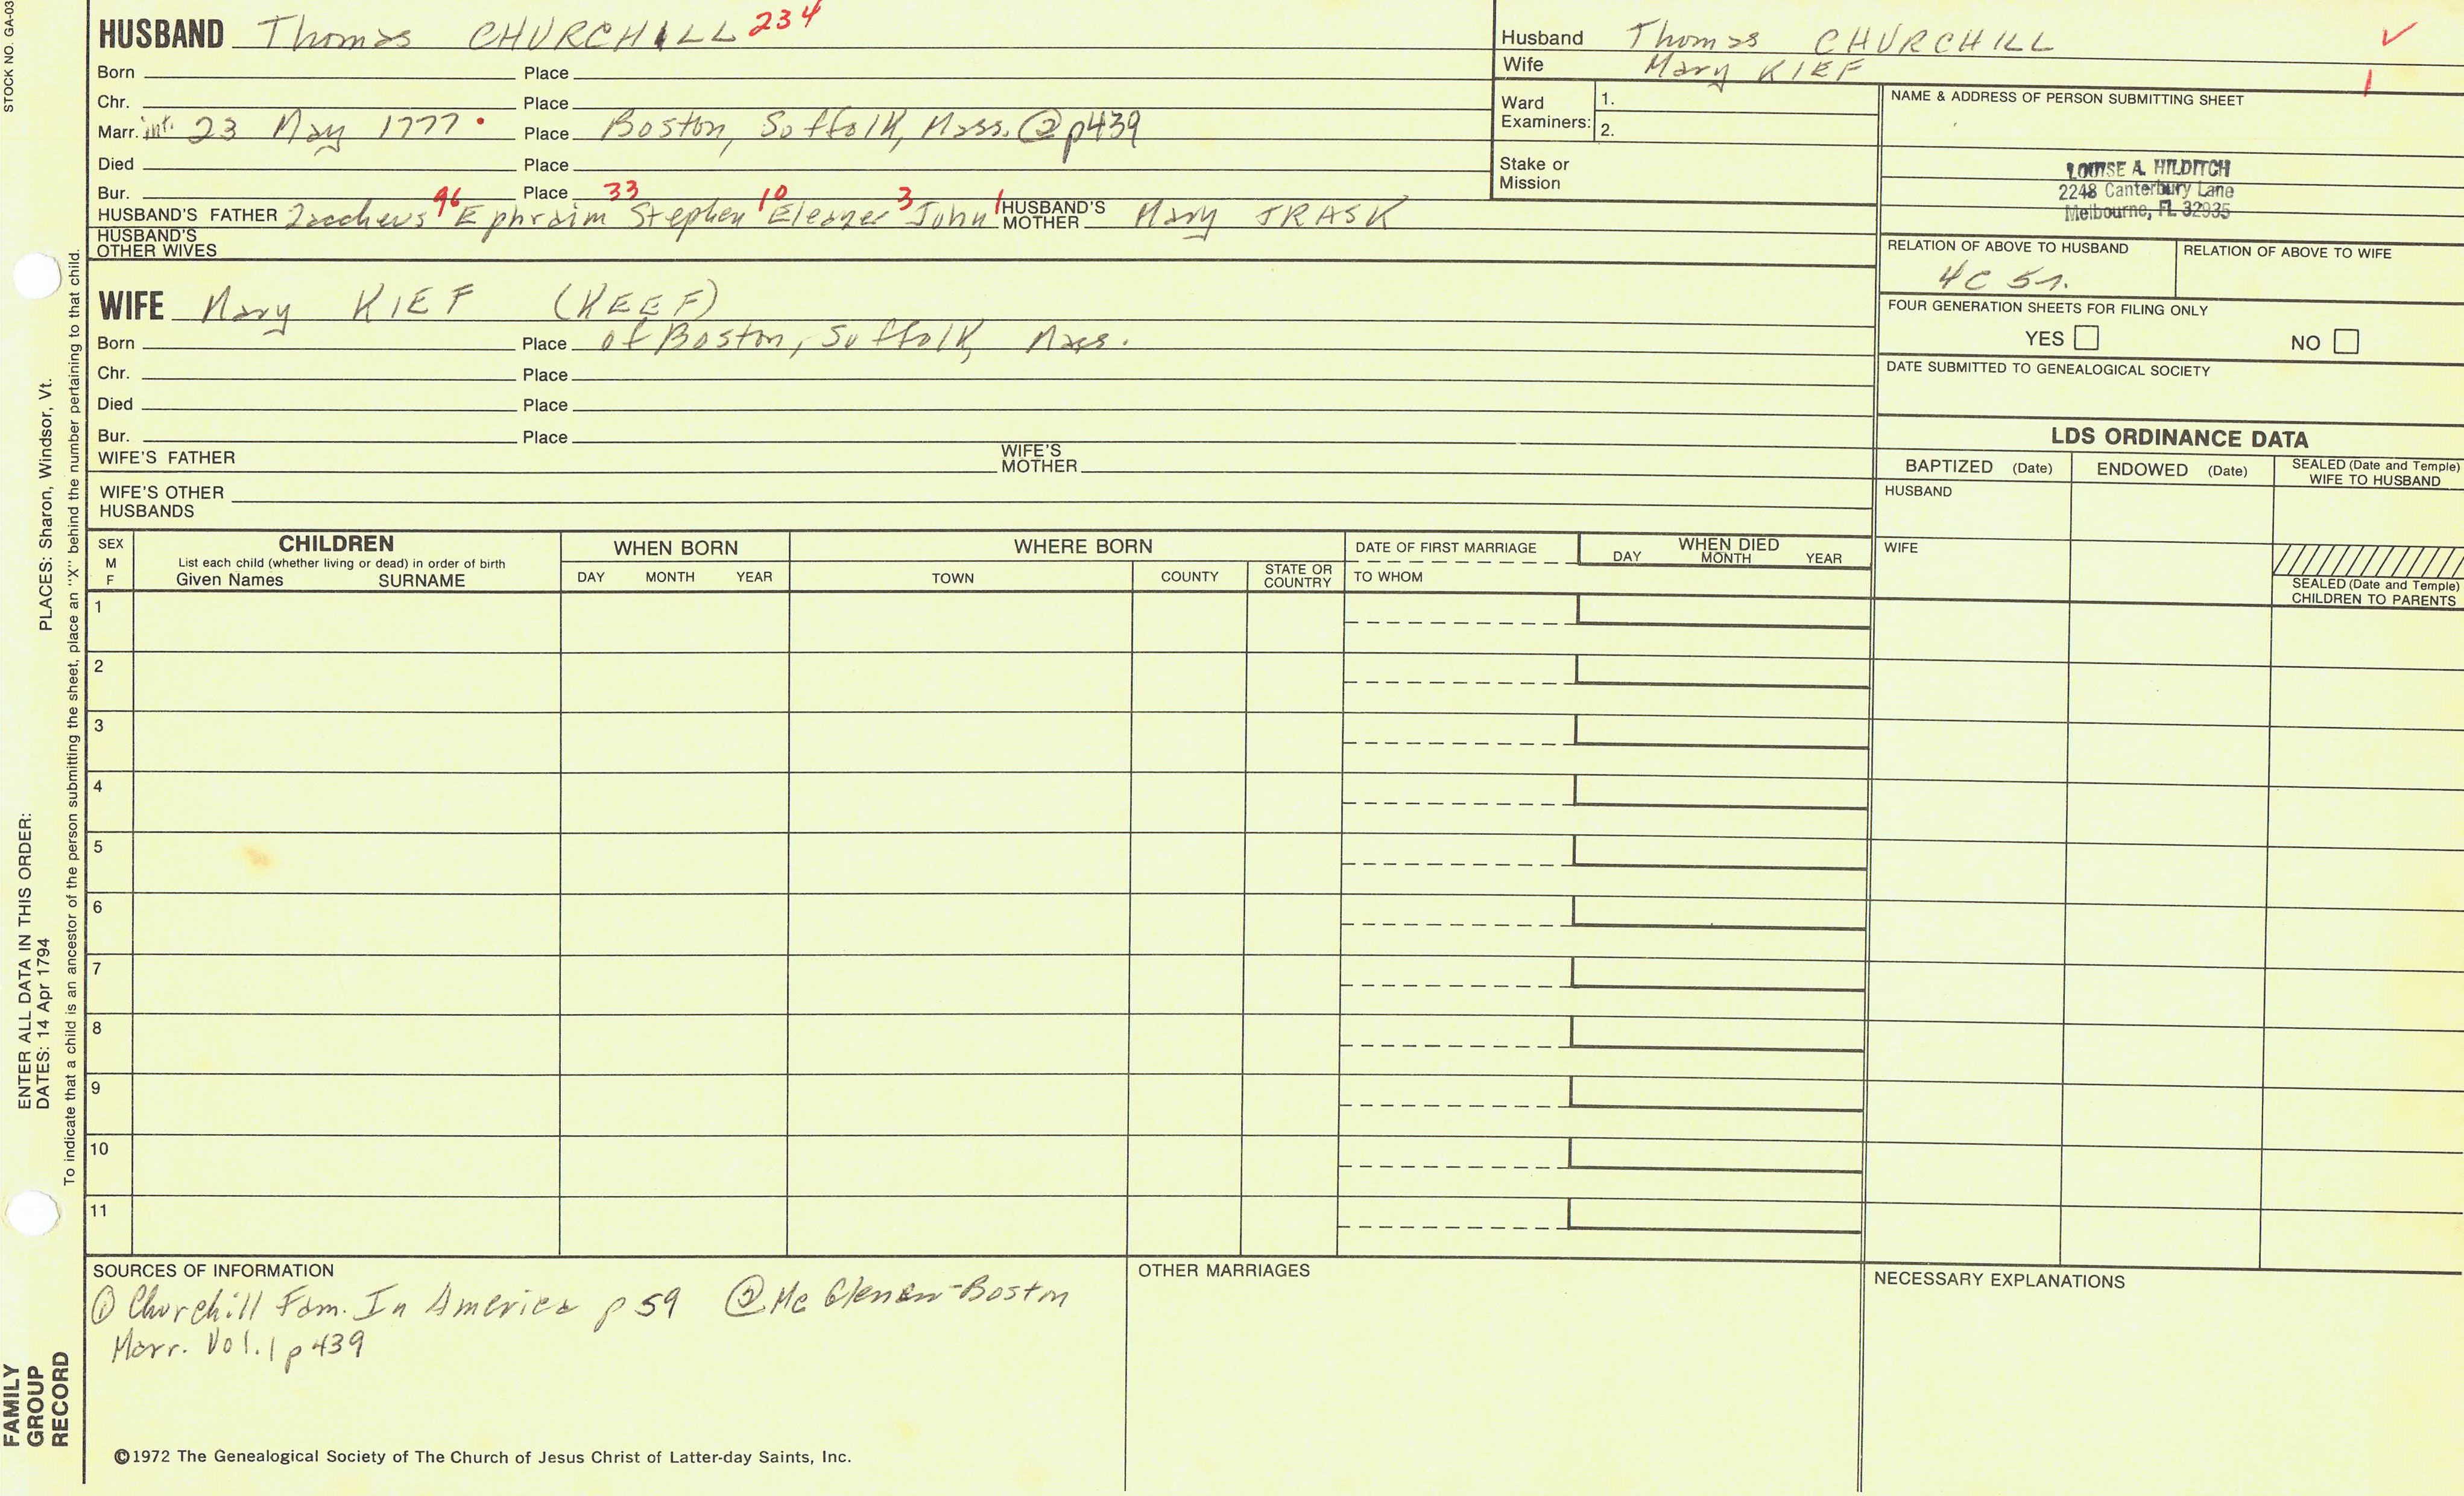 STOCK NO. GA-03
HUSBAND Thomas CHURCHILL 234
Born Place
Chr. Place
Marr. int. 23 May 1777 Place Boston, Suffolk, Mass. ② p439
Died Place
Bur. Place
HUSBAND'S FATHER Zaccheus 96 Ephraim 33 Stephen 10 Eleazer 3 John 1 HUSBAND'S MOTHER Mary TRASK
HUSBAND'S OTHER WIVES
Husband Thomas CHURCHILL ✓
Wife Mary KIEF 1
Ward Examiners: 1.
2.
Stake or Mission
NAME & ADDRESS OF PERSON SUBMITTING SHEET
LOUISE A. HILDITCH
2248 Canterbury Lane
Melbourne, FL 32935
RELATION OF ABOVE TO HUSBAND RELATION OF ABOVE TO WIFE
4C 5r.
FOUR GENERATION SHEETS FOR FILING ONLY
YES NO
DATE SUBMITTED TO GENEALOGICAL SOCIETY
WIFE Mary KIEF (KEEF)
Born Place of Boston, Suffolk, Mass.
Chr. Place
Died Place
Bur. Place
WIFE'S FATHER WIFE'S MOTHER
WIFE'S OTHER HUSBANDS
LDS ORDINANCE DATA
BAPTIZED (Date) ENDOWED (Date) SEALED (Date and Temple) WIFE TO HUSBAND
HUSBAND
WIFE
SEALED (Date and Temple) CHILDREN TO PARENTS
SEX M F
CHILDREN
List each child (whether living or dead) in order of birth
Given Names SURNAME
WHEN BORN
DAY MONTH YEAR
WHERE BORN
TOWN COUNTY STATE OR COUNTRY
DATE OF FIRST MARRIAGE
TO WHOM
WHEN DIED
DAY MONTH YEAR
1
2
3
4
5
6
7
8
9
10
11
SOURCES OF INFORMATION
① Churchill Fam. In America p 59 ② Mc Glenen-Boston
Marr. Vol. 1 p 439
OTHER MARRIAGES
NECESSARY EXPLANATIONS
©1972 The Genealogical Society of The Church of Jesus Christ of Latter-day Saints, Inc.
FAMILY GROUP RECORD
ENTER ALL DATA IN THIS ORDER:
DATES: 14 Apr 1794
PLACES: Sharon, Windsor, Vt.
To indicate that a child is an ancestor of the person submitting the sheet, place an "X" behind the number pertaining to that child.